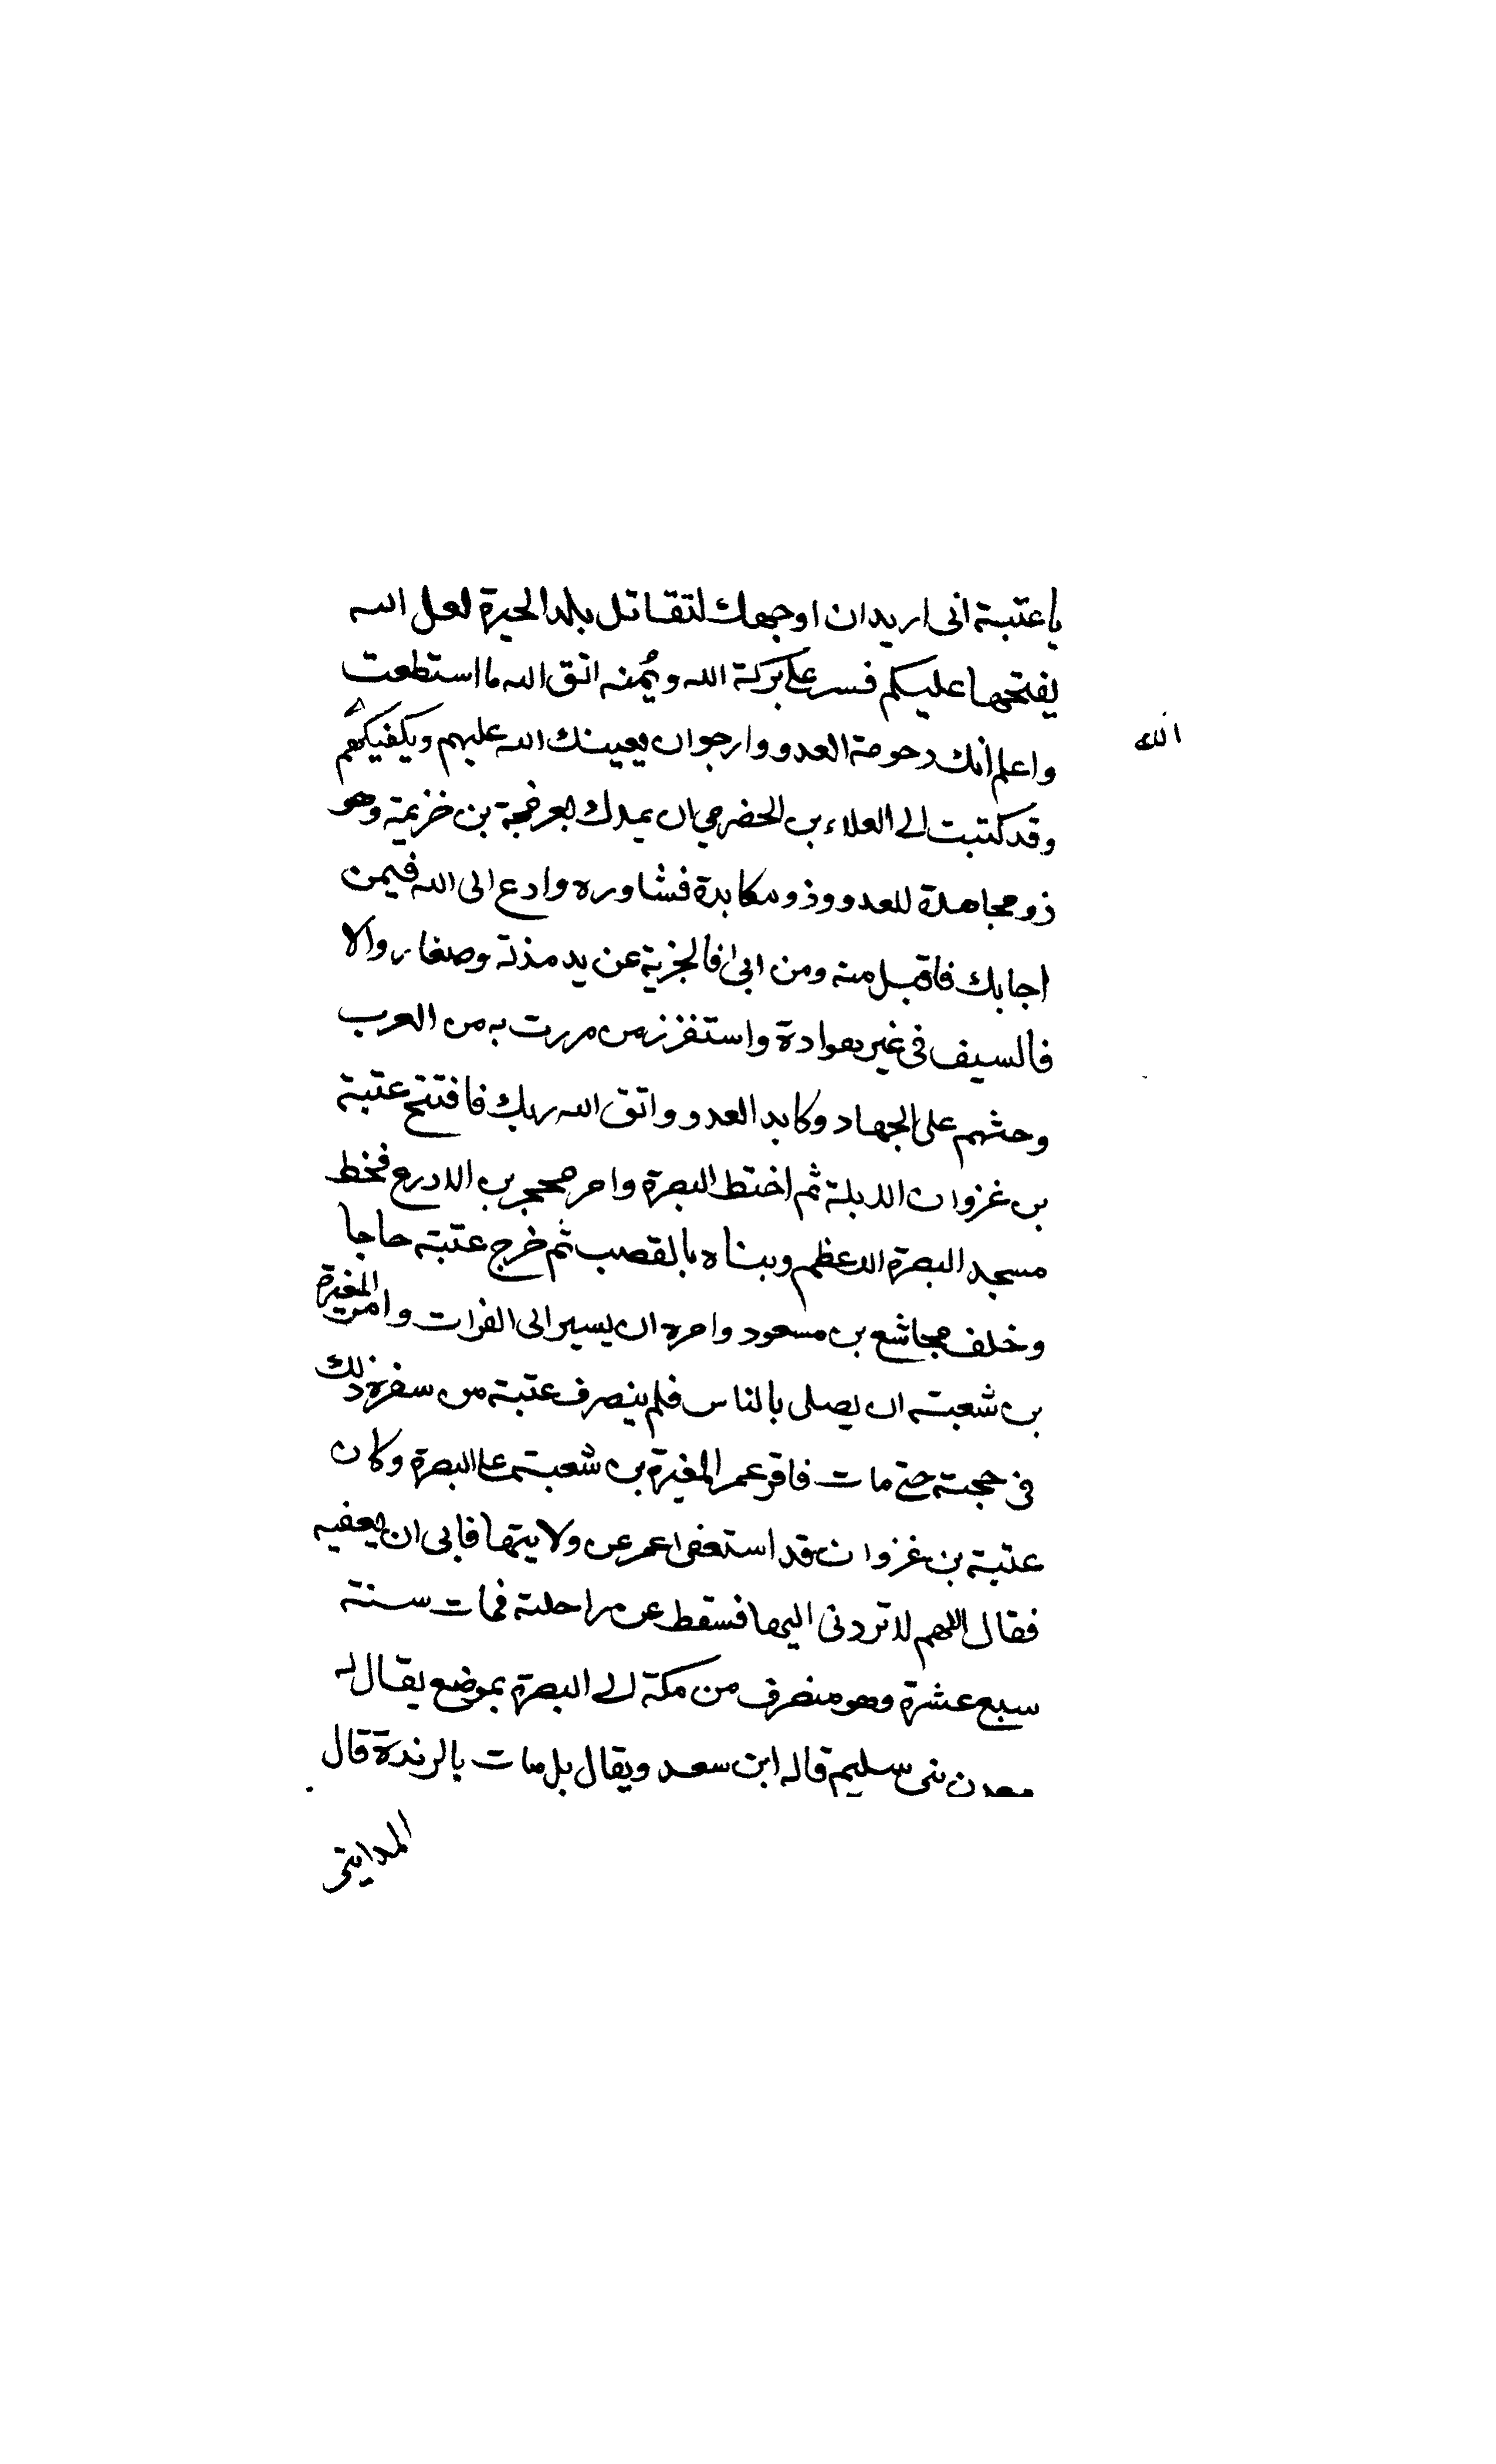 يا عتبة انى اريد ان اوجهك لتقاتل بلد الحيرة لعل الله
يفتحها عليكم فسر على بركة الله ويُمنه اتق الله ما استطعت
واعلم انك حومة العدو وارجو ان يعينك الله عليهم ويكفيكهم
الله
وقد كتبت الى العلاء بن الحضرمي ان يمدك بعرفجة بن خزيمة وهو
ذو مجاهدة للعدو وذو مكابدة فشاوره وادع الى الله فمن
اجابك فاقبل منه ومن ابى فالجزية عن يد مذلة وصغار والا
فالسيف فى غير هوادة واستفزز من مررت به من العرب
وحثهم على الجهاد وكابد العدو واتق الله ربك فافتتح عتبة
بن غزوان الابلة ثم اختط البصرة وامر محجر بن الادرع فخط
مسجد البصرة الاعظم وبناه بالقصب ثم خرج عتبة حاجا
وخلف مجاشع بن مسعود وامره ان يسير الى الفرات وامر المغيرة
بن شعبة ان يصلى بالناس فلم ينصرف عتبة من سفره ذلك
فى حجته حتى مات فاقر عمر المغيرة بن شعبة على البصرة وكان
عتبة بن غزوان قد استعفى عمر عن ولايتها فابى ان يعفيه
فقال اللهم لا تردنى اليها فسقط عن راحلته فمات سنة
سبع عشرة وهو منصرف من مكة الى البصرة بموضع يقال له
معدن بنى سليم قاله ابن سعد ويقال بل مات بالربذة قال
المداينى